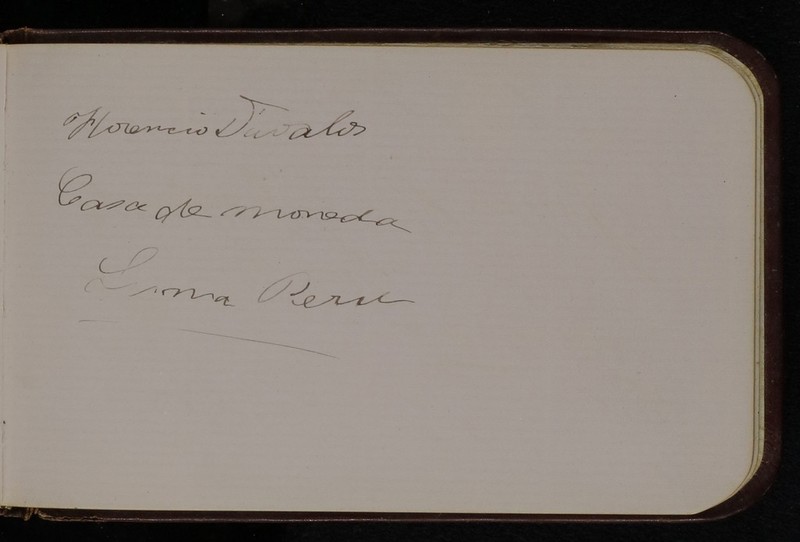 Florencio Davalos
Casa de moneda
Lima Peru